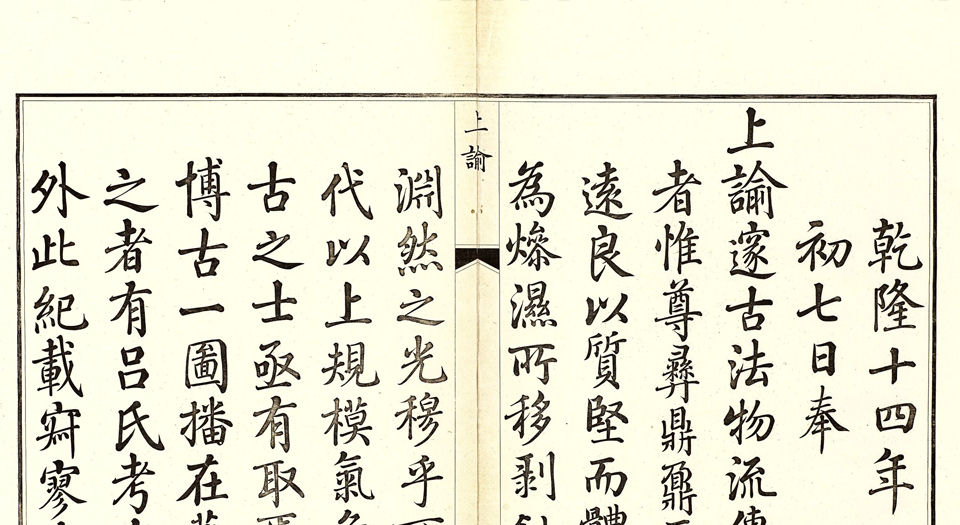 乾隆十四年
初七日奉
上諭邃古法物流傳
者惟尊彝鼎鼐
遠良以質堅而體
為燥濕所移剥
上諭
淵然之光穆乎
代以上規模氣
古之士亟有取焉
博古一圖播在
之者有呂氏考
外此紀載寂寥